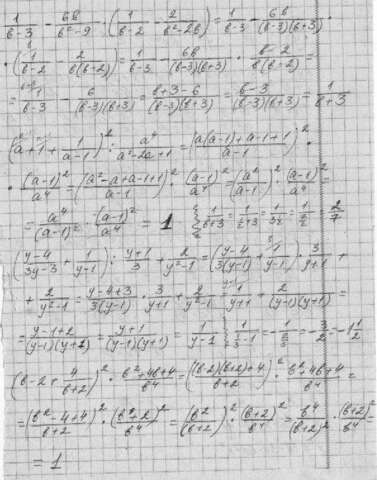 1/(b-3) - 6b/(b²-9) · (1/(b-2) - 2/(b²-2b)) = 1/(b-3) - 6b/((b-3)(b+3)) ·
· (1/(b-2) - 2/(b(b-2))) = 1/(b-3) - 6b/((b-3)(b+3)) · (b-2)/(b(b-2)) =
= 1/(b-3) - 6/((b-3)(b+3)) = (b+3-6)/((b-3)(b+3)) = (b-3)/((b-3)(b+3)) = 1/(b+3)
(a+1+1/(a-1))² : a⁴/(a²-2a+1) = ((a(a-1)+a-1+1)/(a-1))² ·
· (a-1)²/a⁴ = ((a²-a+a-1+1)/(a-1))² · (a-1)²/a⁴ = (a²/(a-1))² · (a-1)²/a⁴ =
= a⁴/(a-1)² · (a-1)²/a⁴ = 1 1/(b+3) = = = 2/7
((y-4)/(3y-3) + 1/(y-1)) : (y+1)/3 + 2/(y²-1) = ((y-4)/(3(y-1)) + 1/(y-1)) · 3/(y+1) +
+ 2/(y²-1) = (y-4+3)/(3(y-1)) · 3/(y+1) + 2/(y²-1) = 1/(y+1) + 2/((y-1)(y+1)) =
= (y-1+2)/((y-1)(y+1)) = (y+1)/((y-1)(y+1)) = 1/(y-1) = - = -3/2 = -1 1/2
(b-2+4/(b+2))² · (b²+4b+4)/b⁴ = (((b-2)(b+2)+4)/(b+2))² · (b²+4b+4)/b⁴ =
= ((b²-4+4)/(b+2))² · (b+2)²/b⁴ = (b²/(b+2))² · (b+2)²/b⁴ = b⁴/(b+2)² · (b+2)²/b⁴ =
= 1